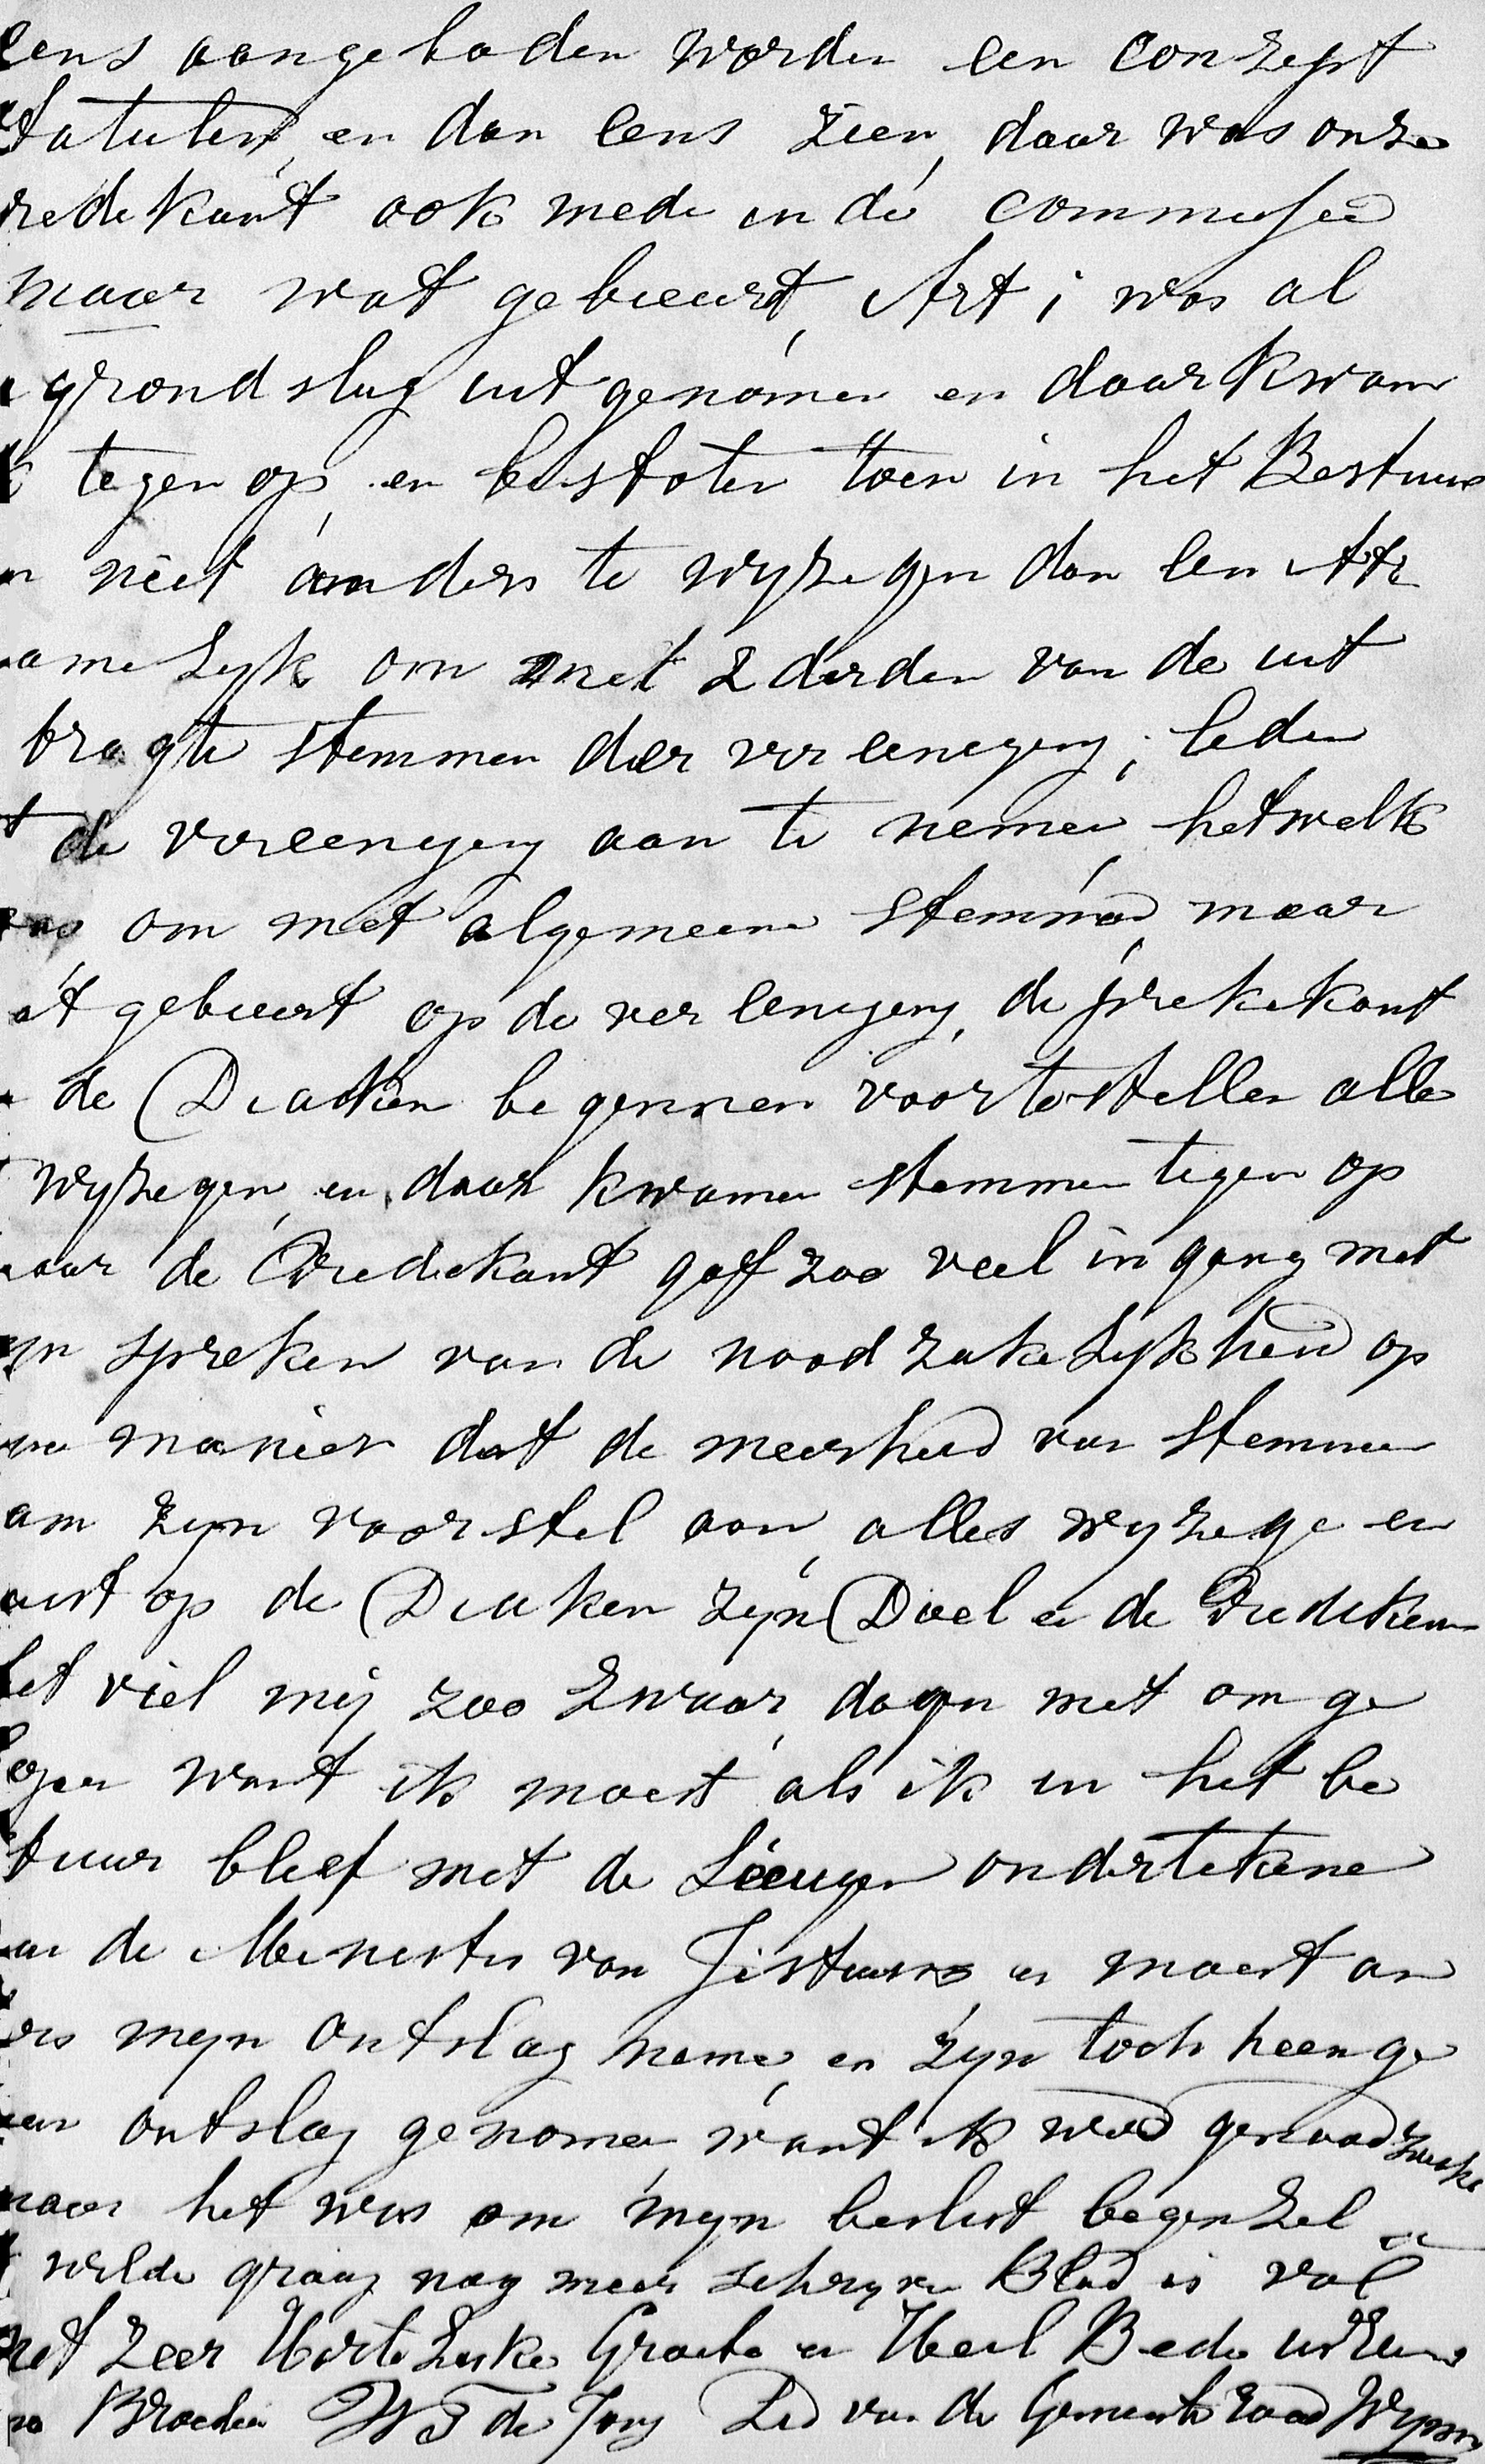 eens aangeboden worden een conzept
statuten, en dan eens zien, daar was onze
redekant ook mede in de commissie
maar wat gebeurt, Art 1 was al
grondslag uit genomen en daar kwam
k tegen op, en besloten toen in het Bestuur
n niet anders te wyzegen dan een Art
amelyk om met 2 derden van de uit
bragte stemmen der vereenegeng, leden
t de vereenegeng aan te nemen, hetwelk
was om met algemeene stemmen, maar
at gebeurt op de vereenegeng, de prekekant
de Diaken begennen voortestellen alles
wyzegen, en daar kwamen stemmen tegen op
maar de Predekant gaf zoo veel ingang met
zyn spreken van de noodzakelykheid op
manier dat de meerheid van stemmen
am zyn voorstel aan, alles wyzege en
uist op de Diaken zyn Doel en de Predekan
het viel mij zoo zwaar, dagen met om ge
logen want ik moest als ik in het be
tuur bleef met de Leugen ondertekene
an de Menester van Jistuur en moest an
ers myn ontslag neme, en zyn toch heenge
en ontslag genomen, want ik wed genoodzaak
maar het was om myn beslist begenzel
wilde graag nog meer schryven Blad is vol
met zeer Hertelyke Groete en Heel Bede
Broeder de Jong Led van de Gemeente raad